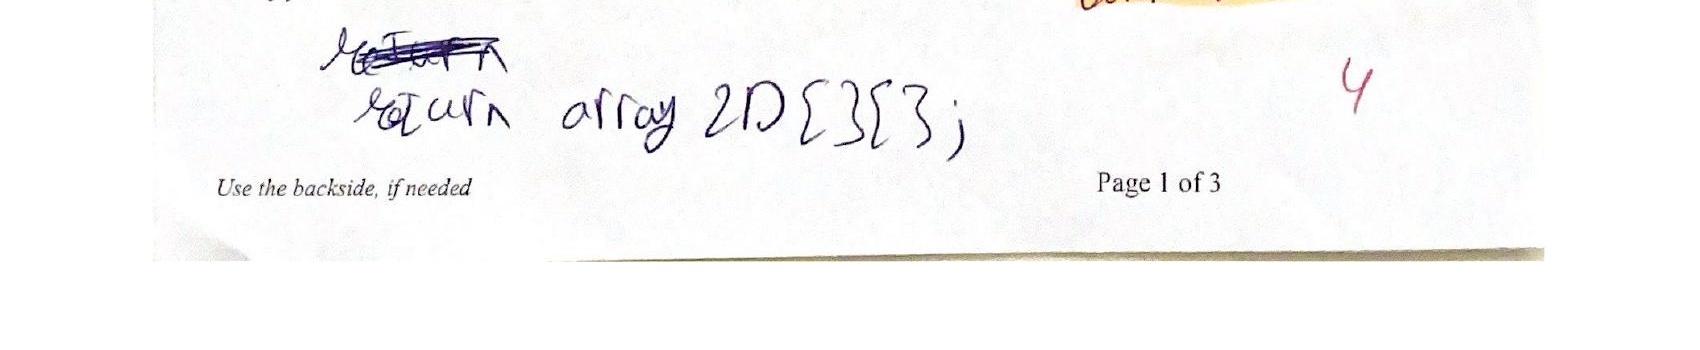 return
return array 2D{}{};
4
Use the backside, if needed
Page 1 of 3